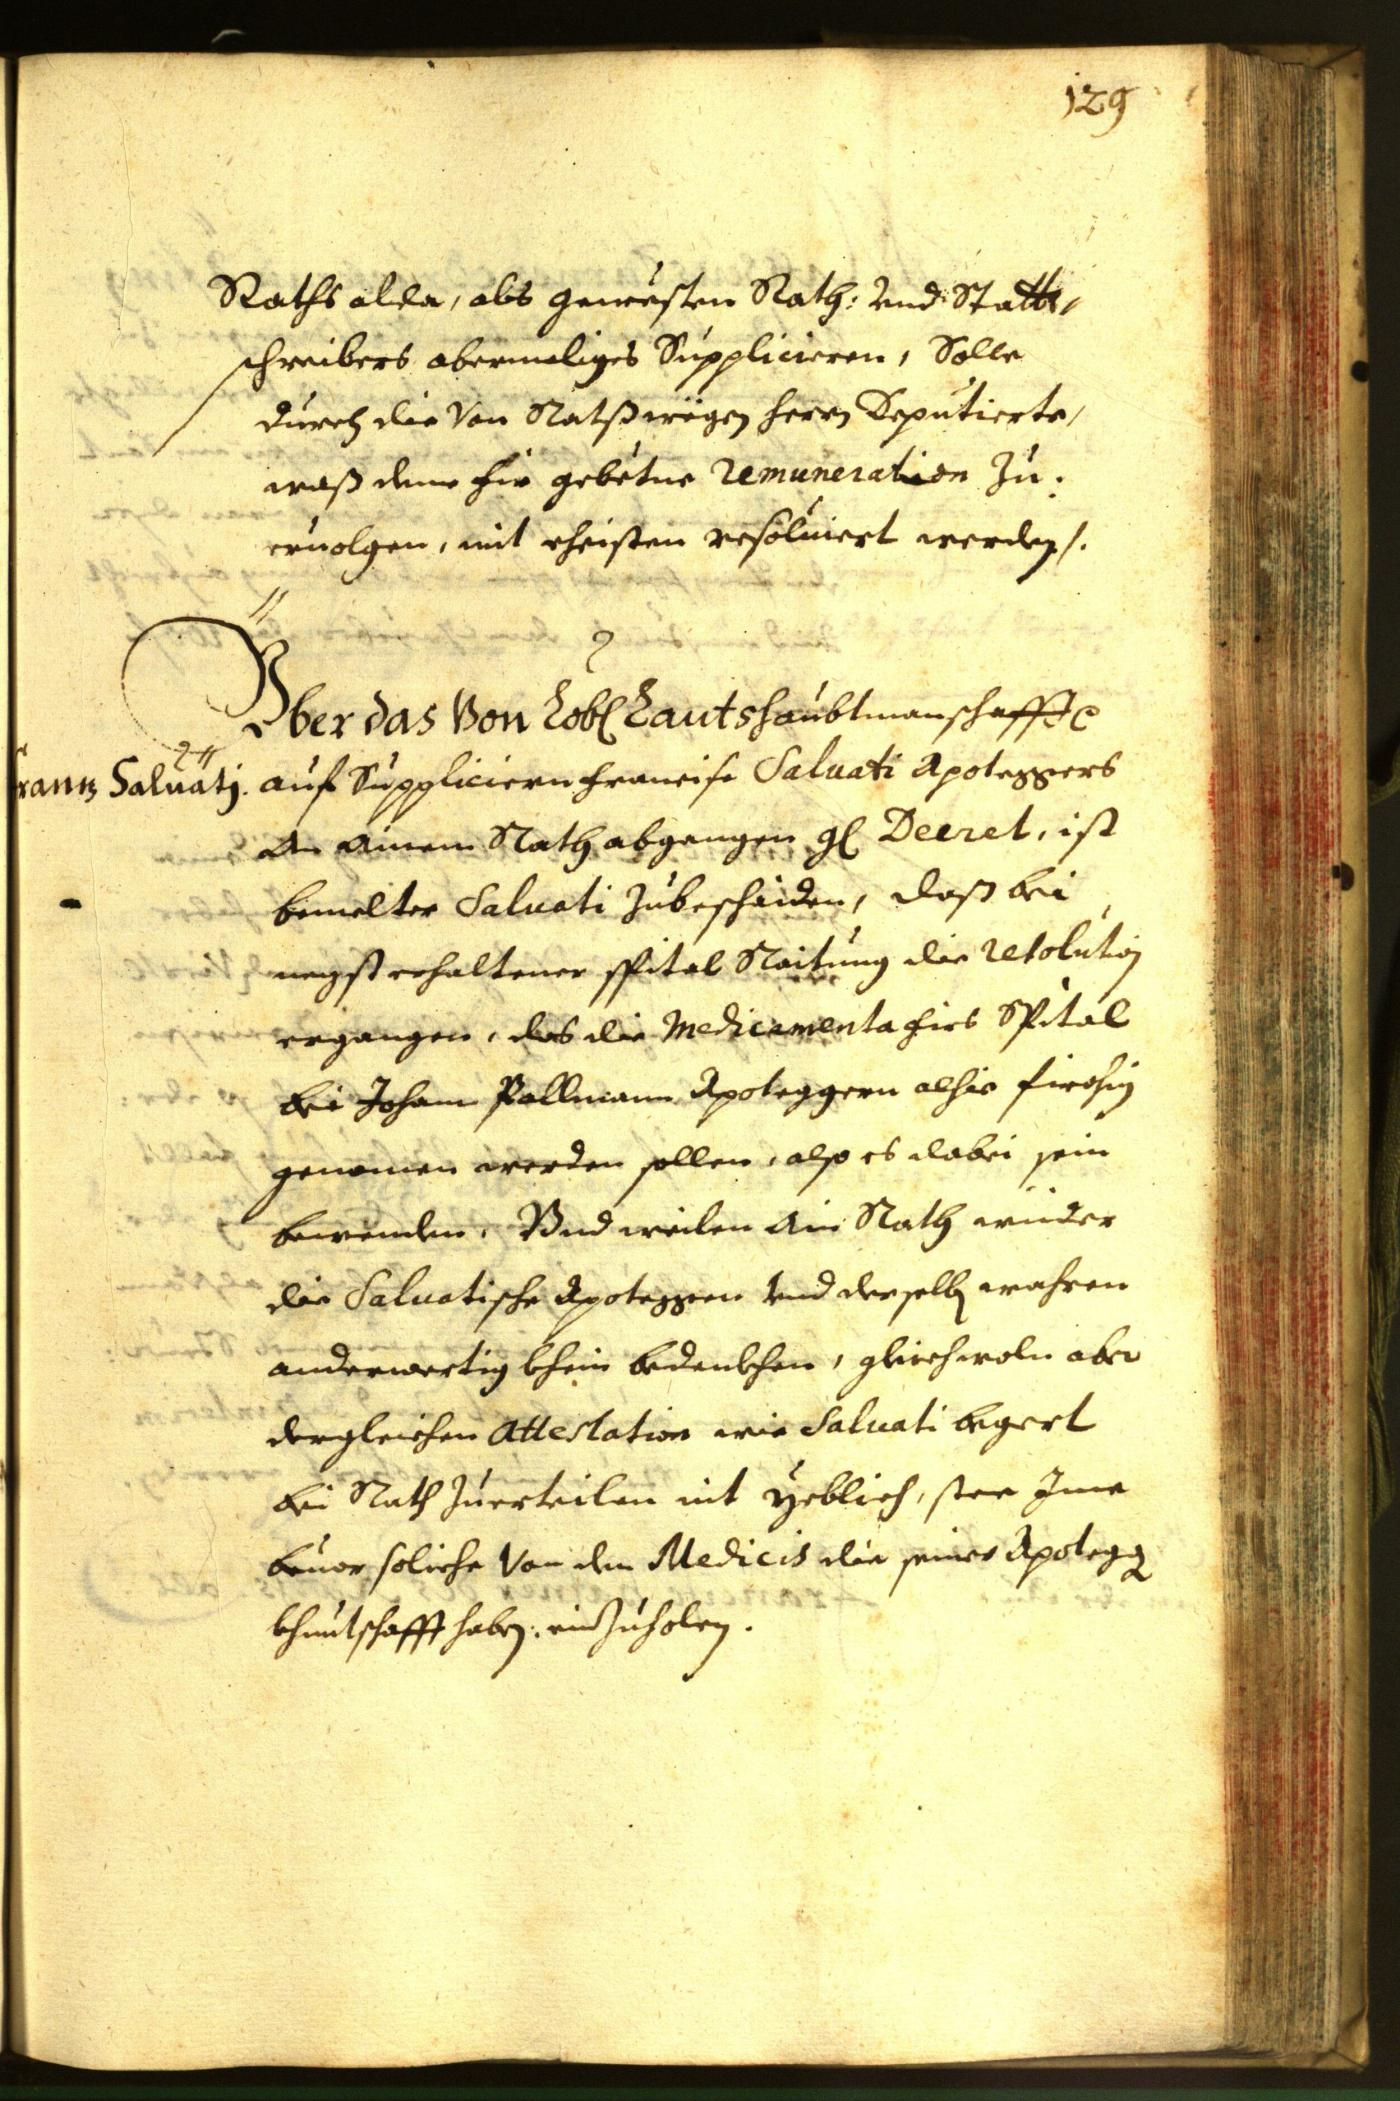 129
Raths alda, als gewesten Rath: vnd Statt-
schreibers abermaliges Supplicieren, Solle
durch die von Rathswegen herrn Deputierte,
waß deme fir gebetne remuneration zu:
ervolgen, mit ehisten resoluiert werden /.
Vber das Von Lobl Landtshaubtmanschafft
Frantz Saluatj.
auf Suppliciern Francisc Saluati Apoteggers
An ainem Rath abgangen gl Decret, ist
bemelter Saluati zubeschaiden, daß bei
negst erhaltener spital Raitung die resolution
ergangen, das die Medicamenta firs Spital
bei Johann Pallmann Apoteggern alhie firohin
genomen werden sollen, also es dabei sein
bewenden. Vnd weilen Ain Rath wider
die Saluatische Apoteggen vnd derselben wahren
anderwertig khein bedenkhen, gleichwoln aber
dergleichen Attestation wie Saluati begert
bei Rath zuerteilen nit yeblich, stee Ime
beuor soliche von den Medicis die seiner Apotegg
khuntschafft haben, einzuholen.